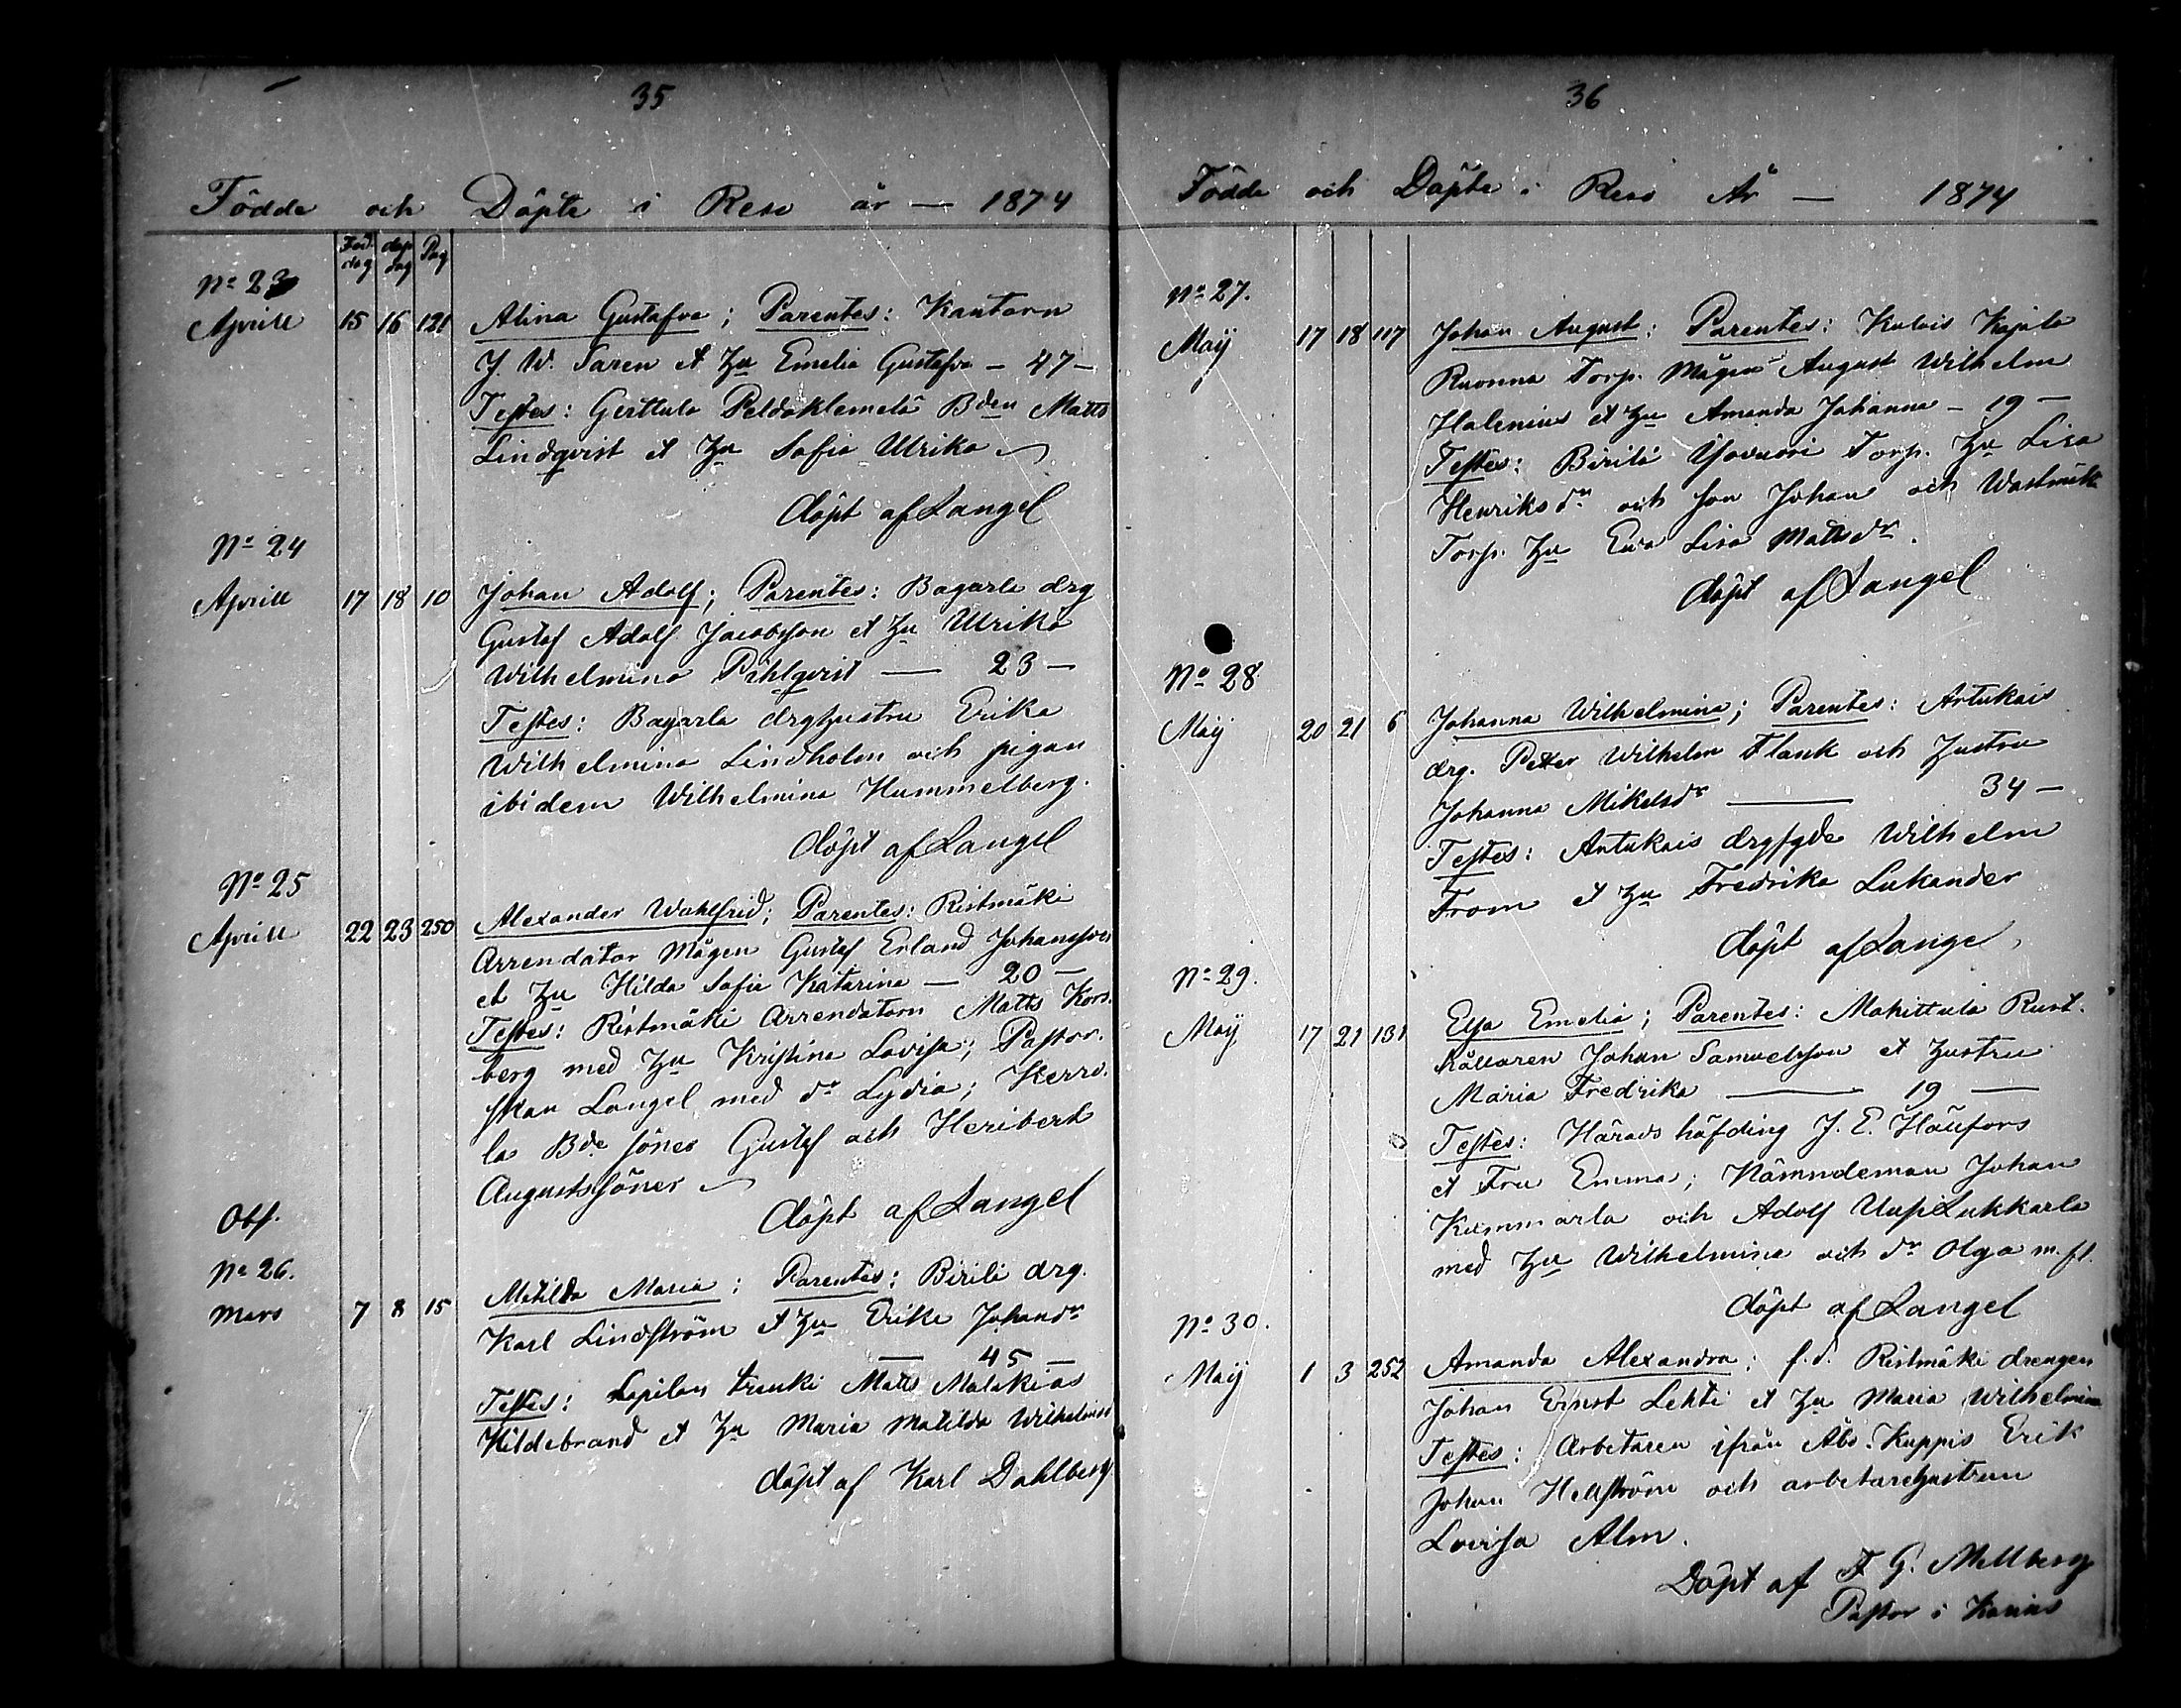 35
Födde och Döpte i Reso år — 1874
Föd. dag döp dag Pag
No 23
Aprill 15 16 121 Alina Gustafva; Parentes: Kantorn
J. W. Saren et Hu Emelia Gustafva — 47 —
Testes: Gerttula Peldoklemelä Bden Matts
Lindqvist et Hu Sofia Ulrika
döpt af Langel
No 24
Aprill 17 18 10 Johan Adolf; Parentes: Bagarla drg
Gustaf Adolf Jacobsson et Hu Ulrika
Wilhelmina Pihlqvist — 23 —
Testes: Bagarla drghustru Erika
Wilhelmina Lindholm och pigan
ibidem Wilhelmina Hummelberg.
döpt af Langel
No 25
Aprill 22 23 250 Alexander Wahlfrid; Parentes: Ristmäki
Arrendator Mågen Gustaf Erland Johansson
et Hu Hilda Sofia Katarina — 20 —
Testes: Ristmäki Arrendatorn Matts Kors-
berg med Hu Kristina Lovisa; Pastor-
skan Langel med dr Lydia; Kerro-
la Bde söner Gustaf och Heribert
Augustssöner
döpt af Langel
Obs.
No 26.
Mars 7 8 15 Matilda Maria; Parentes: Birilä drg.
Karl Lindström et Hu Erika Johansdr
— 45 —
Testes: Lapilan trenki Matts Malakias
Hildebrand et Hu Maria Matilda Wilhelmina
döpt af Karl Dahlberg
36
Födde och Döpte i Reso År — 1874
No 27.
Maij 17 18 117 Johan August; Parentes: Kulois Kapila
Ruonna Torp. Mågen August Wilhelm
Halenius et Hu Amanda Johanna — 19 —
Testes: Birilä Torp. Hu Lisa
Henriksdr och son Johan och
Torp. Hu Eva Lisa Mattsdr.
döpt af Langel
No 28
Maij 20 21 6 Johanna Wilhelmina; Parentes: Artukais
drg. Petter Wilhelm Flank och Hustru
Johanna Mikelsdr — 34 —
Testes: Artukais drgsgde Wilhelm
From et Hu Fredrika Lukander
döpt af Langel
No 29.
Maij 17 21 131 Elsa Emelia; Parentes: Mahittula Rust-
hållaren Johan Samuelsson et Hustru
Maria Fredrika — 19 —
Testes: Häradshöfding J. E. Häufors
et Fru Emma; Nämndeman Johan
Kummarla och Adolf UusiLukkarla
med Hu Wilhelmina och dr Olga m. fl.
döpt af Langel
No 30.
Maij 1 3 252 Amanda Alexandra; f. d. Ristmäki drengen
Johan Ernst Lehti et Hu Maria Wilhelmina
Testes: Arbetaren ifrån Åbo Kuppis Erik
Johan Hellström och arbetarehustrun
Lovisa Alm.
Döpt af F G. Mellberg
Pastor i Karins